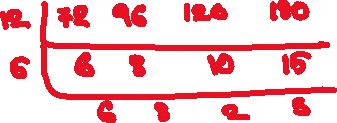 12 72 96 120 180
6 6 8 10 15
6 8 2